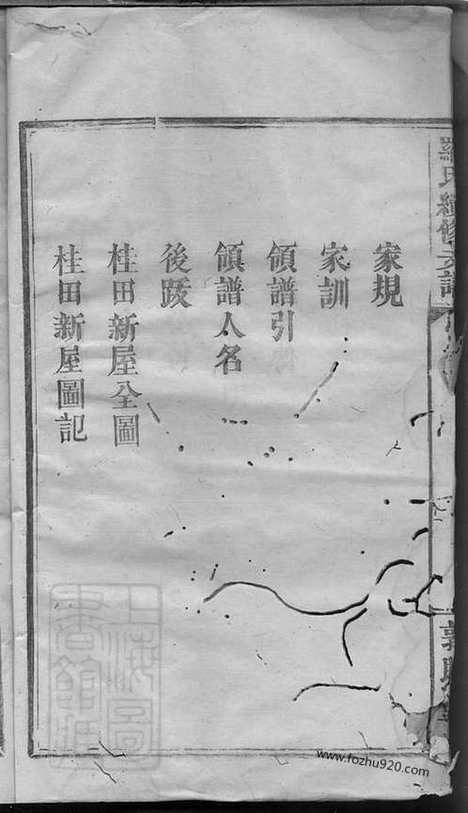 家規
家訓
領譜引
領譜人名
後跋
桂田新屋全圖
桂田新屋圖記
羅氏續修支譜
上海圖書館藏
www.fozhu920.com